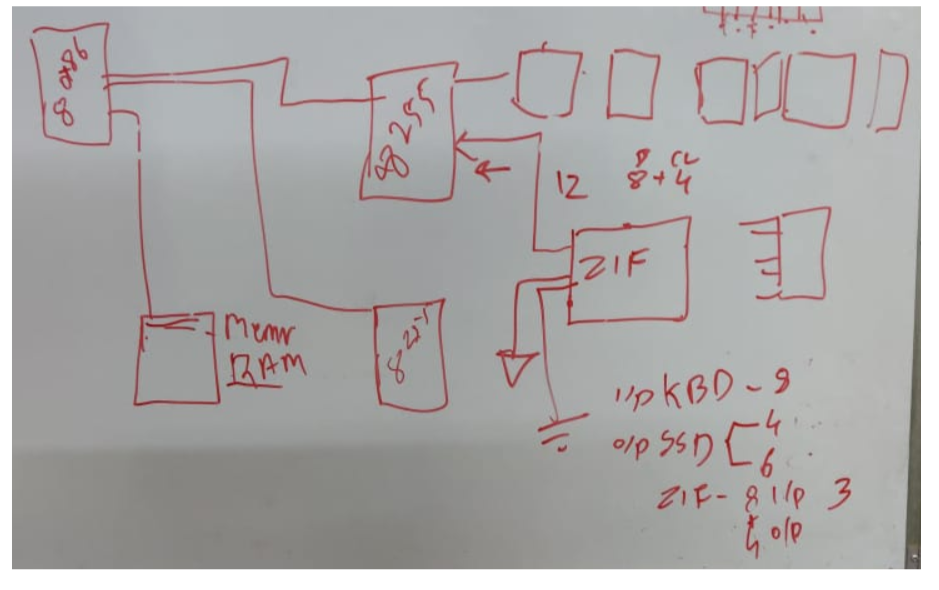 8086
8255
12
D CL
8 + 4
ZIF
Memr
RAM
i/p KBD - 8
o/p SSD 4
6
ZIF - 8 i/p 3
4 o/p